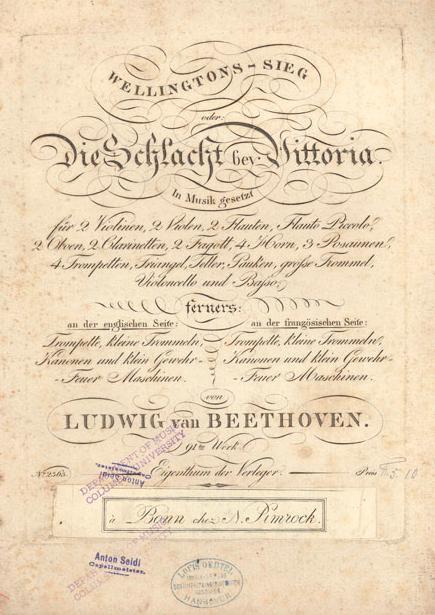 WELLINGTONS-SIEG
oder:
Die Schlacht bey Vittoria.
In Musik gesetzt
für 2 Violinen, 2 Violen, 2 Flauten, Flauto Piccolo,
2 Oboen, 2 Clarinetten, 2 Fagott, 4 Horn, 3 Posaunen,
4 Trompetten, Triangel, Teller, Pauken, große Trommel,
Violoncello und Basso,
ferners:
an der englischen Seite:
Trompette, kleine Trommeln,
Kanonen und klein Gewehr-
-Feuer Maschinen.
an der französischen Seite:
Trompette, kleine Trommeln,
Kanonen und klein Gewehr-
-Feuer Maschinen.
von
LUDWIG van BEETHOVEN.
91tes Werk.
No. 2363. Eigenthum der Verleger. Preis
DEPARTMENT OF MUSIC
COLUMBIA UNIVERSITY
Anton Seidl
Capellmeister.
à Bonn chez N. Simrock.
Anton Seidl
Capellmeister.
DEPARTMENT OF MUSIC
COLUMBIA UNIVERSITY
LOUIS OERTEL
HANNOVER